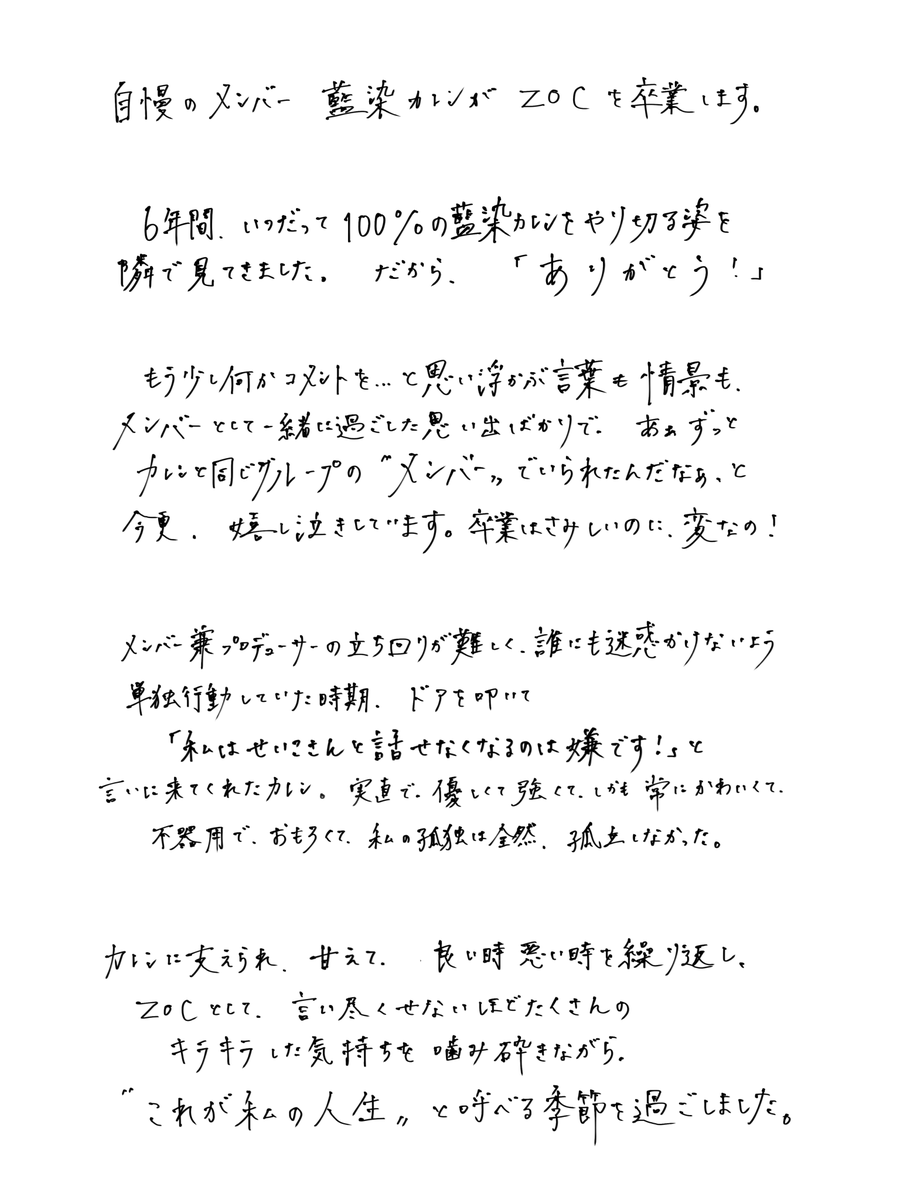 自慢のメンバー 藍染カレンが ZOCを卒業します。
6年間、いつだって100%の藍染カレンをやり切る姿を
隣で見てきました。 だから、 「ありがとう!」
もう少し何かコメントを…と思い浮かぶ言葉も情景も、
メンバーとして一緒に過ごした思い出ばかりで。 あぁずっと
カレンと同じグループの〝メンバー〟でいられたんだなぁ、と
今更、 嬉し泣きしています。卒業はさみしいのに、変なの!
メンバー兼プロデューサーの立ち回りが難しく、誰にも迷惑かけないよう
単独行動していた時期、 ドアを叩いて
「私はせいこさんと話せなくなるのは嫌です!」と
言いに来てくれたカレン。 実直で、優しくて強くて、しかも常にかわいくて、
不器用で、おもろくて、私の孤独は全然、孤立しなかった。
カレンに支えられ、甘えて、 良い時悪い時を繰り返し、
ZOCとして、言い尽くせないほどたくさんの
キラキラした気持ちを噛み砕きながら、
〝これが私の人生〟と呼べる季節を過ごしました。